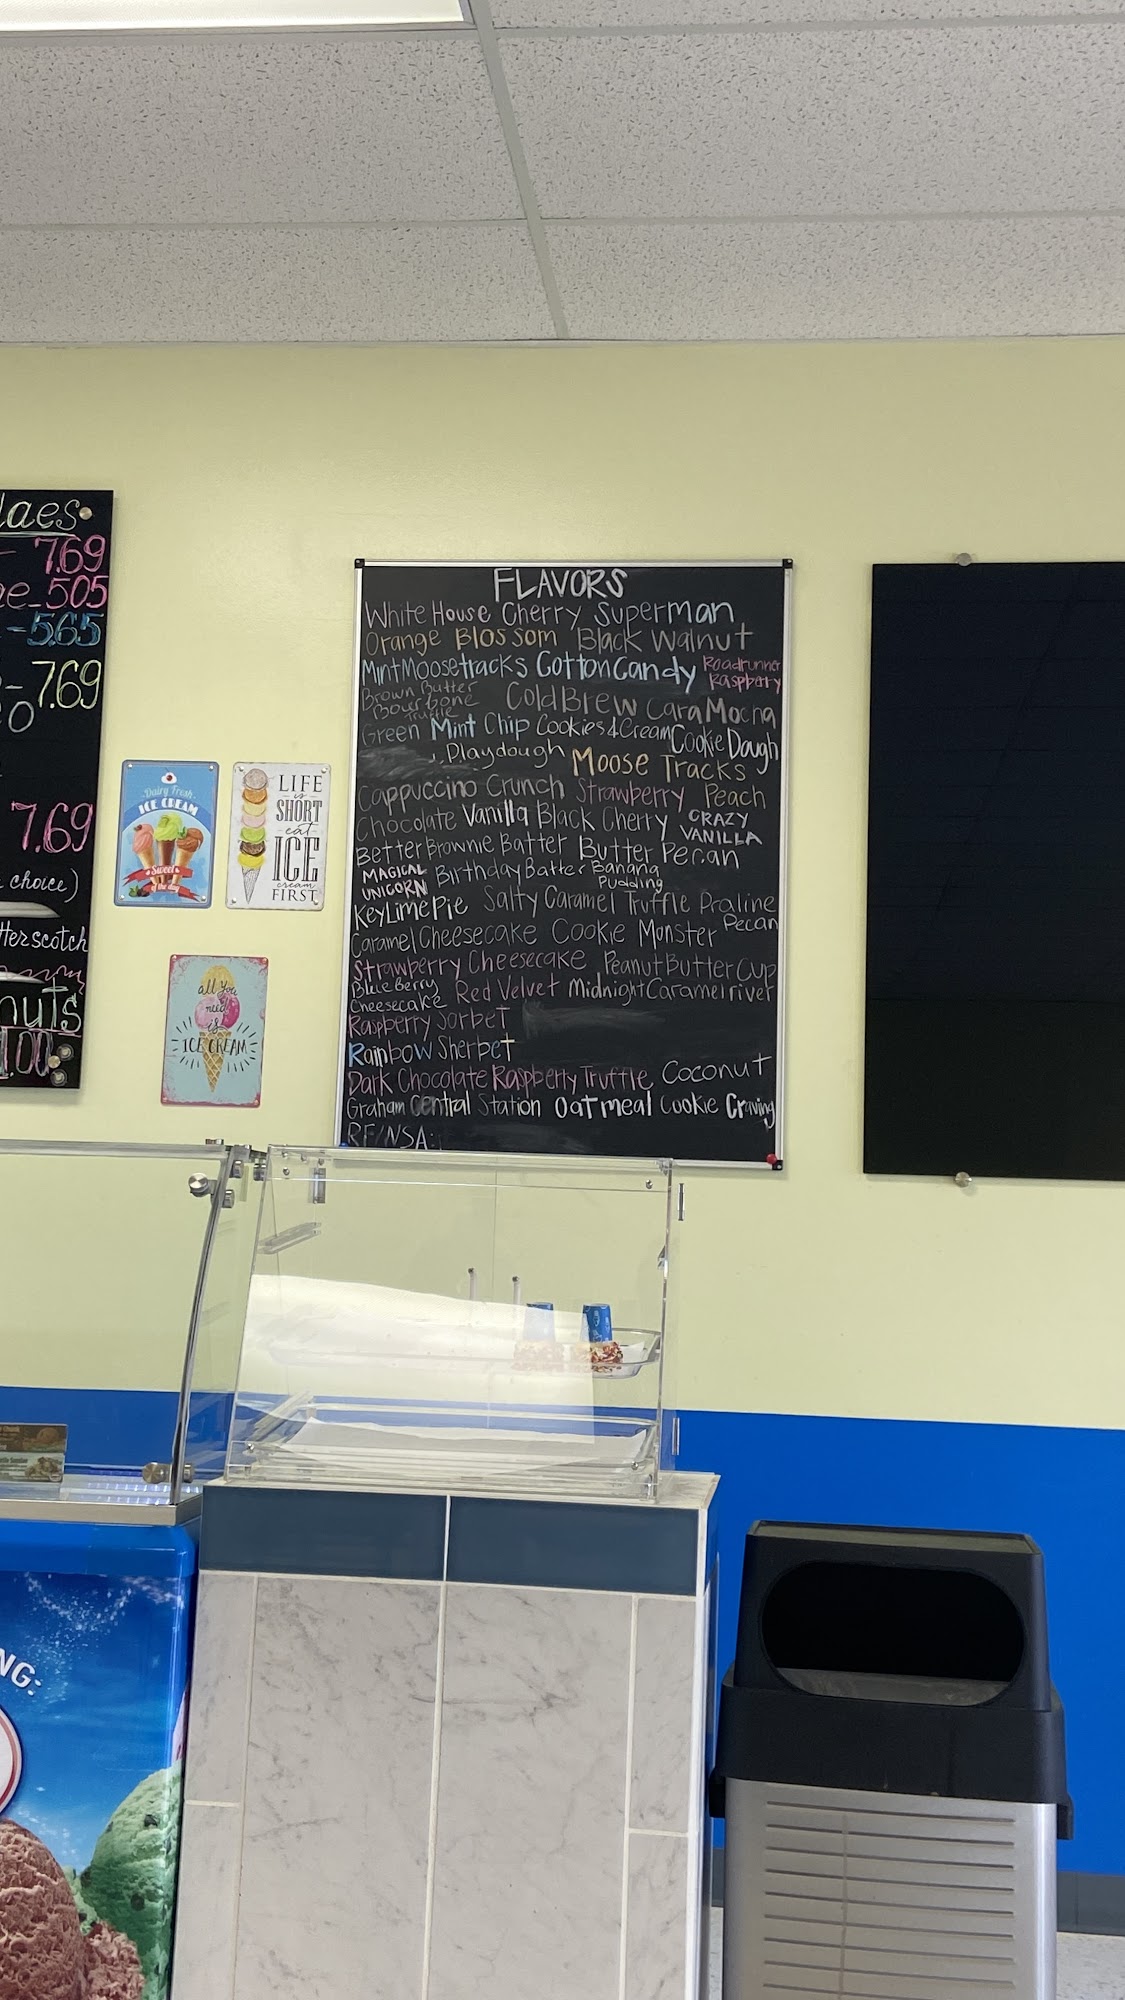 laes
- 7.69
ae - 505
- 5.65
- 7.69
0
7.69
choice)
tterscotch
nuts
1.00
Dairy Fresh
ICE CREAM
Sweet
of the day
LIFE
is
SHORT
eat
ICE
cream
FIRST
all you
need
is
ICE CREAM
FLAVORS
White House Cherry Superman
Orange Blossom Black Walnut
Mint Moosetracks Cotton Candy Roadrunner Raspberry
Brown Butter Bourbone Truffle Cold Brew CaraMocha
Green Mint Chip Cookies & Cream Cookie Dough
Playdough Moose Tracks
Cappuccino Crunch Strawberry Peach
Chocolate Vanilla Black Cherry CRAZY VANILLA
Better Brownie Batter Butter Pecan
MAGICAL UNICORN Birthday Batter Banana Pudding
Key Lime Pie Salty Caramel Truffle Praline Pecan
Caramel Cheesecake Cookie Monster
Strawberry Cheesecake Peanut Butter Cup
Blue Berry Cheesecake Red Velvet Midnight Caramel river
Raspberry Sorbet
Rainbow Sherbet
Dark Chocolate Raspberry Truffle Coconut
Graham Central Station Oatmeal Cookie Craving
RF/NSA:
NG: